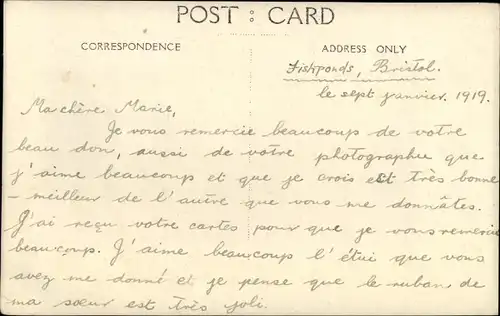 POST : CARD
CORRESPONDENCE
ADDRESS ONLY
Fishponds, Bristol.
le sept janvier. 1919.
Ma chère Marie,
Je vous remercie beaucoup de votre
beau don, aussi de vôtre photographie que
j'aime beaucoup et que je crois est très bonne
– meilleur de l'autre que vous me donnâtes.
J'ai reçu votre cartes pour que je vous remercie
beaucoup. J'aime beaucoup l'étui que vous
avez me donné et je pense que le ruban de
ma sœur est très joli.